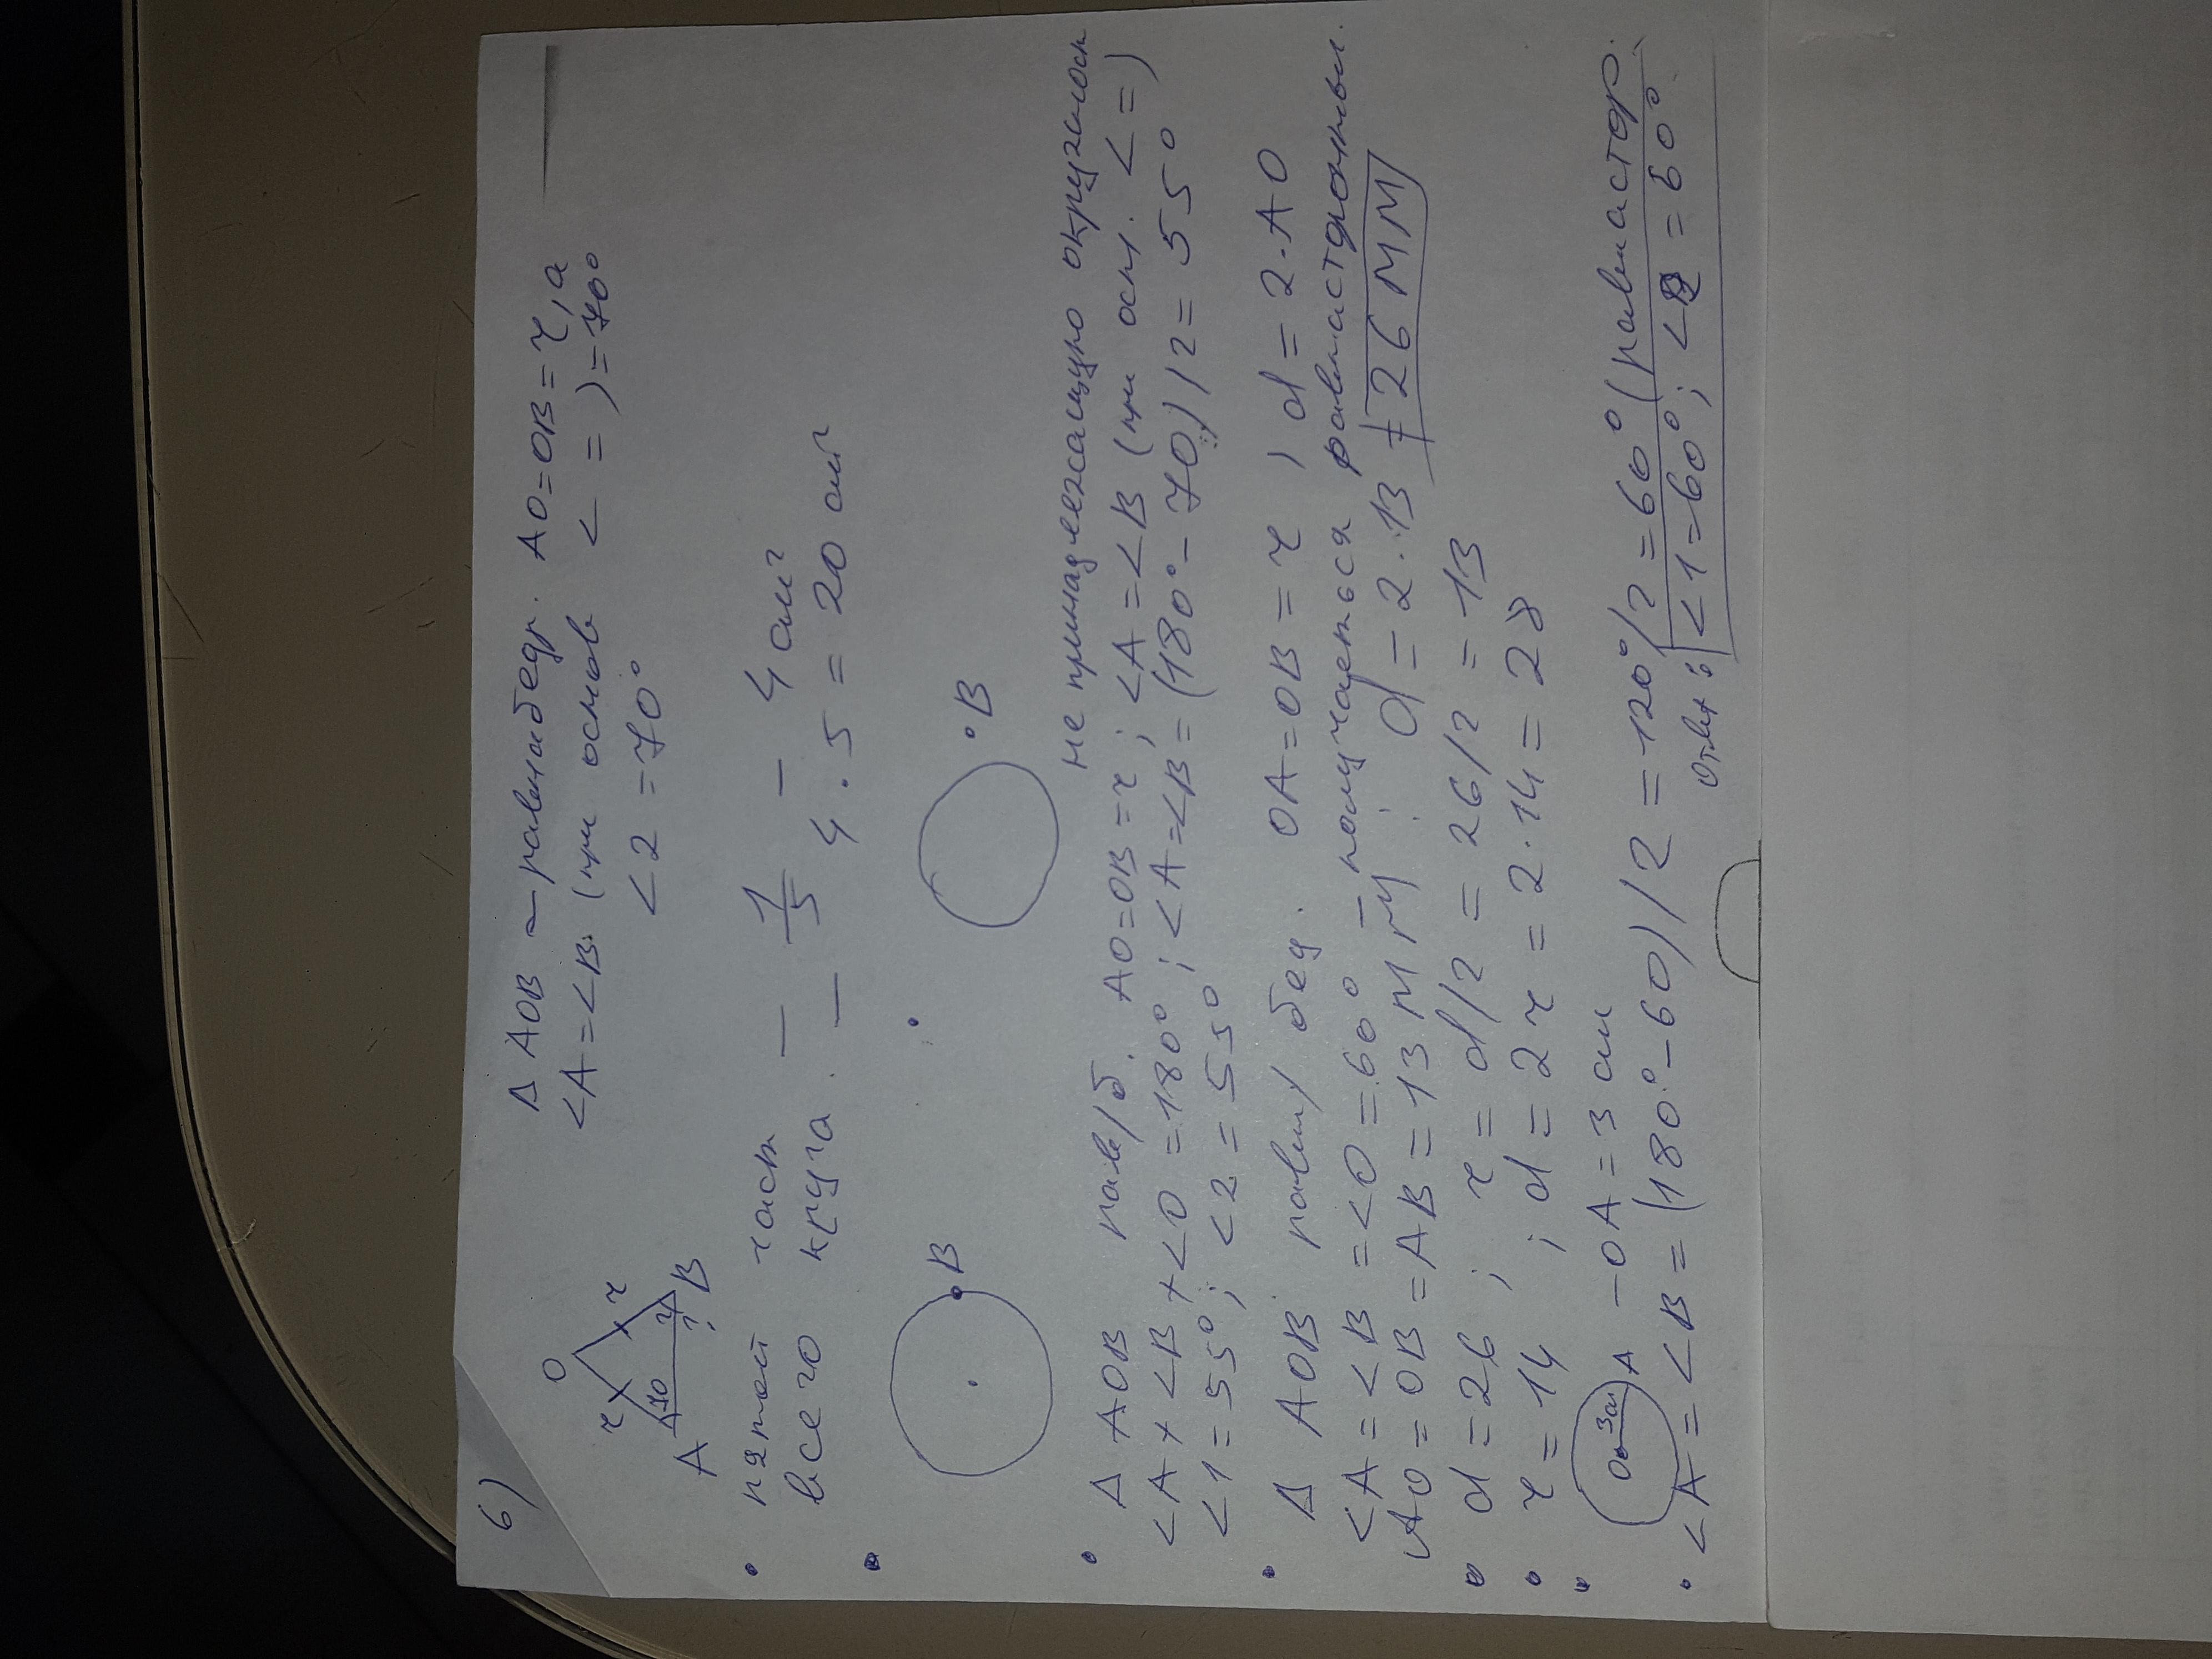 6)
Δ AOB — равнобедр. AO=OB=r, а
<A=<B (при основ < = )=70°
<2=70°
O
r r
A 70 2 ? B
• пятой част — 1/5 — 4 см²
всего круга. — 4·5 = 20 см²
• B
• B
не принадлежащую окружност
• Δ AOB рав/б. AO=OB=r; <A=<B (при осн. < =)
<A+<B+<O=180°; <A=<B=(180°-70)/2=55°
<1=55°; <2=55°
• Δ AOB равн/бед. OA=OB=r, d=2·AO
<A=<B=<O=60° — получается равносторонный.
AO=OB=AB=13 мм; d=2·13=26 мм
• d=26; r=d/2=26/2=13
• r=14; d=2r=2·14=28
• O 3см A —OA=3см
• <A=<B=(180°-60)/2=120°/2=60° (равностор.
Ответ: <1=60°; <2=60°